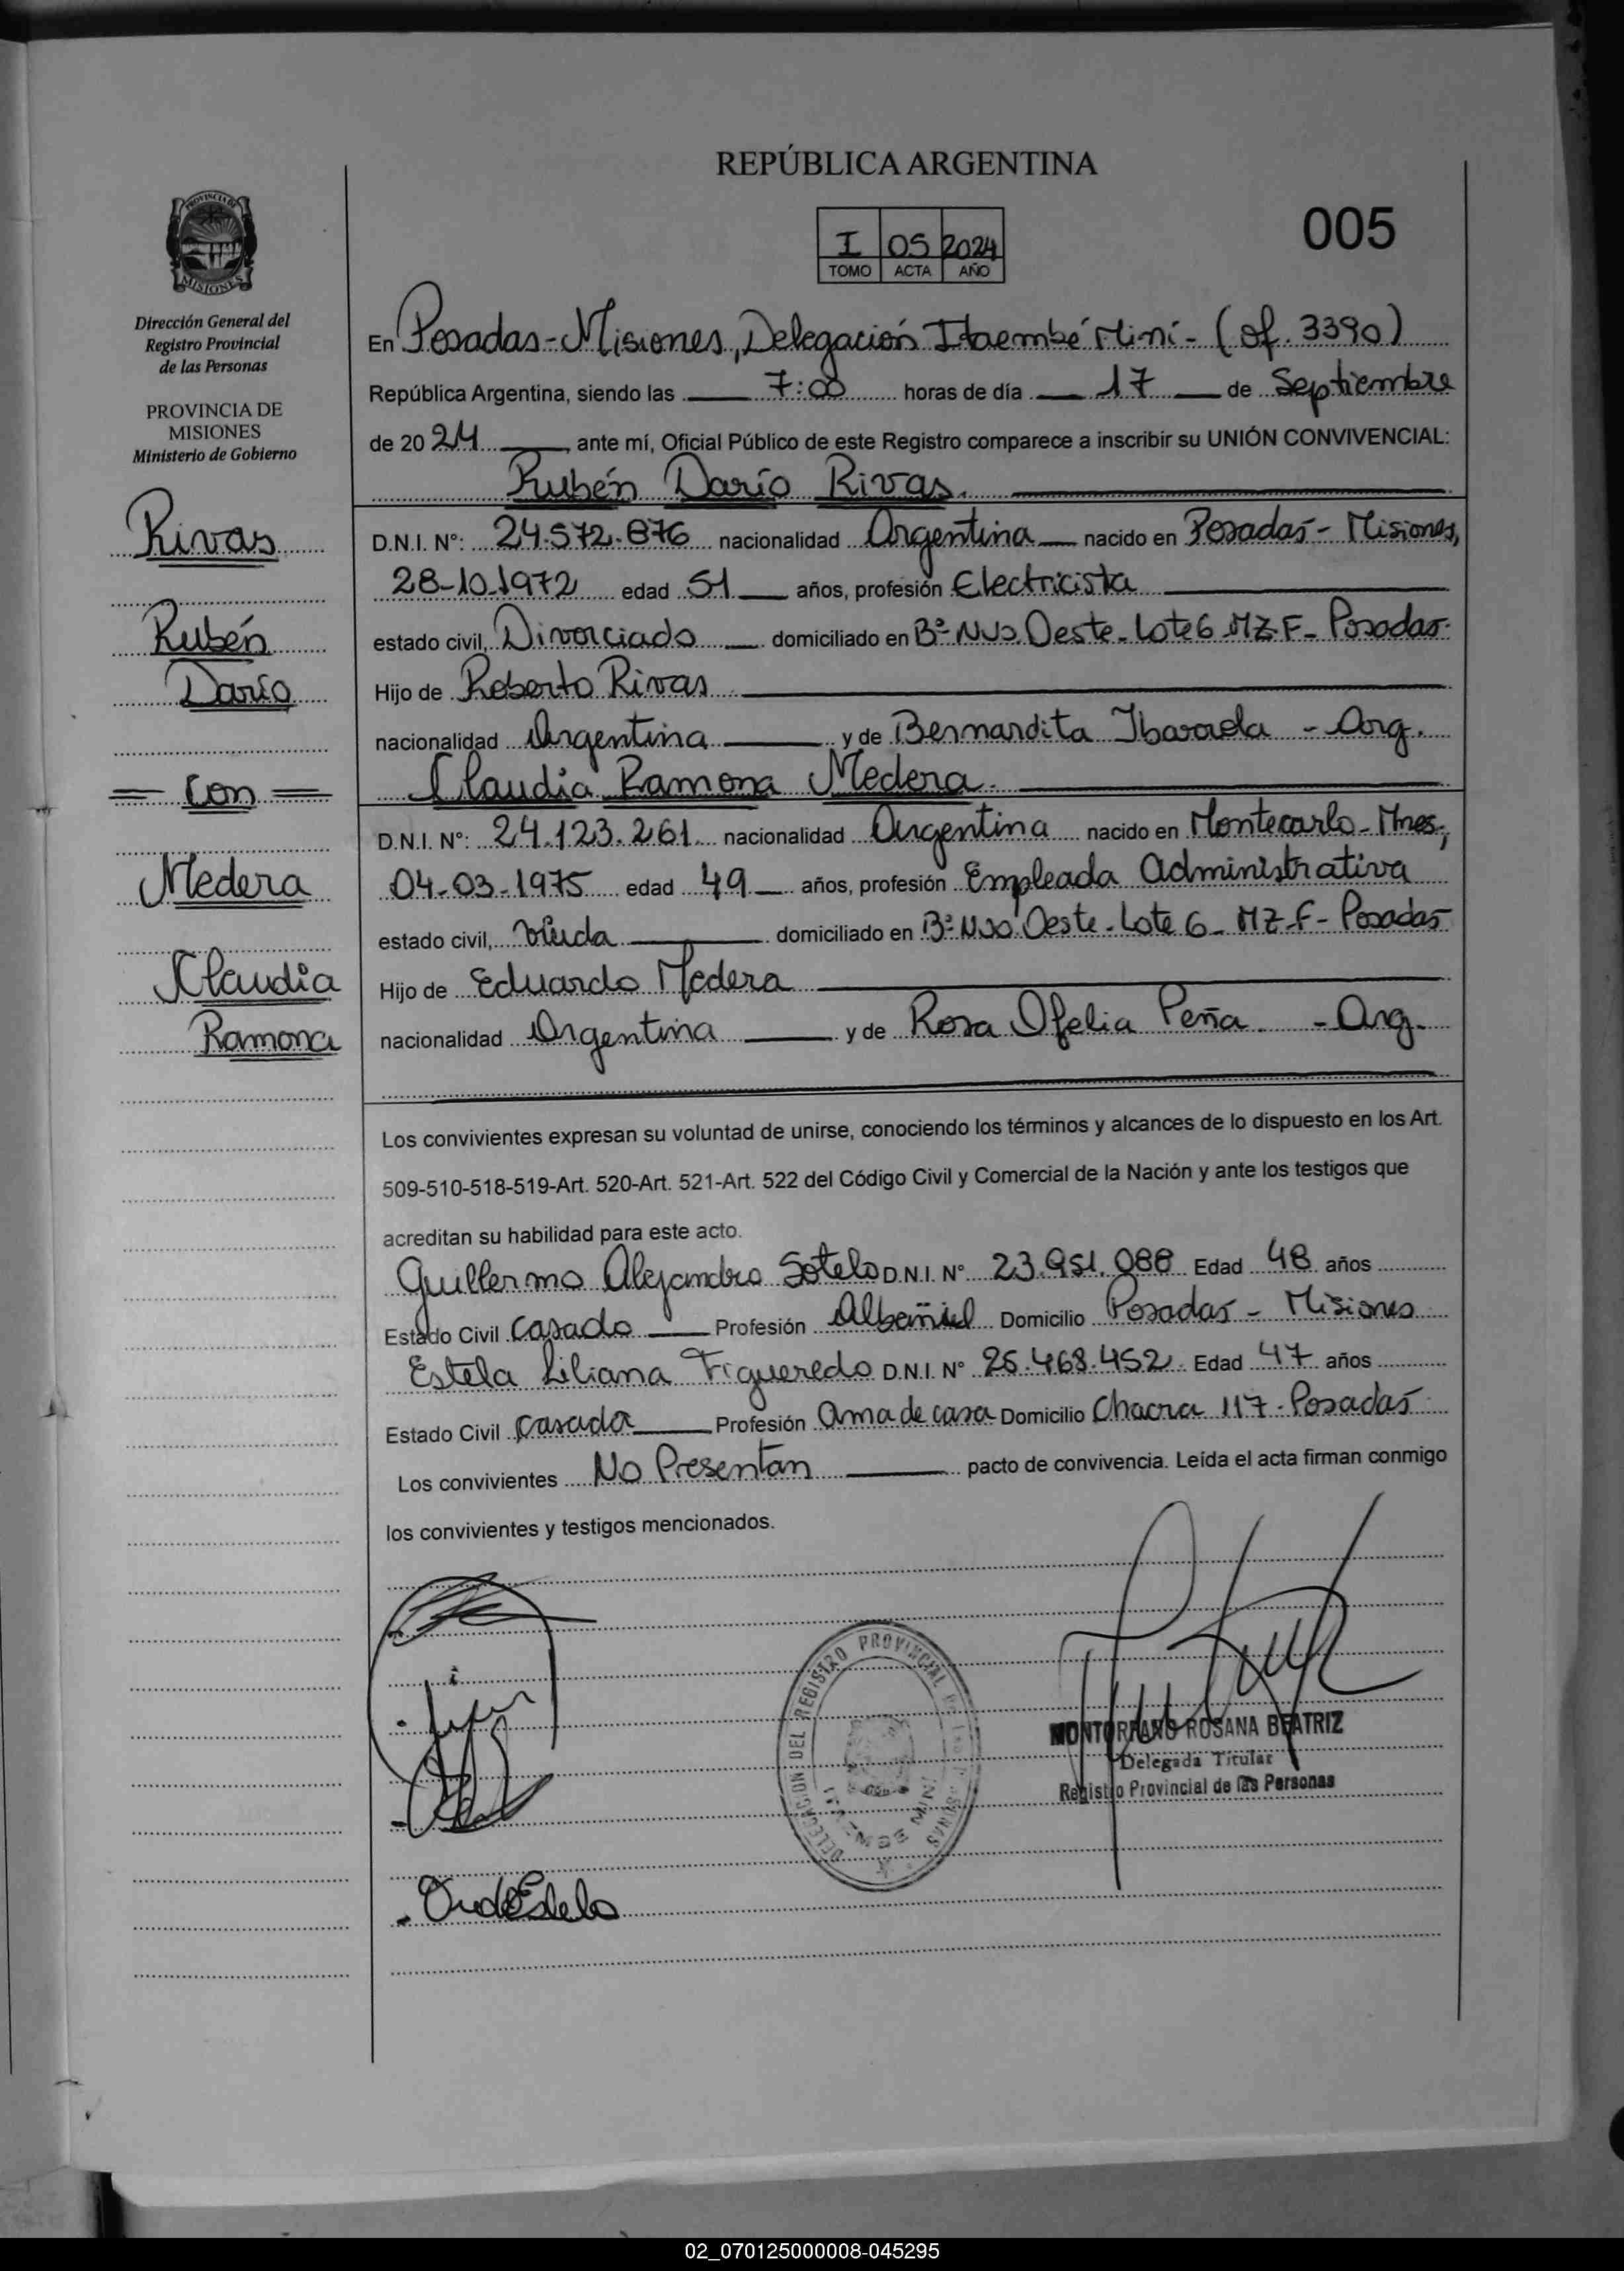 REPÚBLICA ARGENTINA
005
I 05 2024
TOMO ACTA AÑO
PROVINCIA DE
MISIONES
Dirección General del
Registro Provincial
de las Personas
PROVINCIA DE
MISIONES
Ministerio de Gobierno
Rivas
Rubén
Darío
= Con =
Medera
Claudia
Ramona
En Posadas-Misiones, Delegación Itaembé Miní - (of. 3390)
República Argentina, siendo las 7:00 horas de día 17 de Septiembre
de 2024 ante mí, Oficial Público de este Registro comparece a inscribir su UNIÓN CONVIVENCIAL:
Rubén Darío Rivas.
D.N.I. N°: 24.572.876 nacionalidad Argentina nacido en Posadas - Misiones,
28-10-1972 edad 51 años, profesión Electricista
estado civil, Divorciado domiciliado en B° Oeste - Lote 6 MZ-F- Posadas-
Hijo de Roberto Rivas
nacionalidad Argentina y de Bernardita - Arg.
Claudia Ramona Medera.
D.N.I. N°: 24.123.261 nacionalidad Argentina nacido en Montecarlo - Mnes,
04-03-1975 edad 49 años, profesión Empleada Administrativa
estado civil, viuda domiciliado en B° Oeste - Lote 6 - MZ-F- Posadas
Hijo de Eduardo Medera
nacionalidad Argentina y de Rosa Ofelia Peña - Arg.
Los convivientes expresan su voluntad de unirse, conociendo los términos y alcances de lo dispuesto en los Art.
509-510-518-519-Art. 520-Art. 521-Art. 522 del Código Civil y Comercial de la Nación y ante los testigos que
acreditan su habilidad para este acto.
Guillermo Alejandro Sotelo D.N.I. N° 23.951.088 Edad 48 años
Estado Civil Casado Profesión Albañil Domicilio Posadas - Misiones
Estela Liliana Figueredo D.N.I. N° 25.468.452 Edad 47 años
Estado Civil casada Profesión Ama de casa Domicilio Chacra 117 - Posadas
Los convivientes No Presentan pacto de convivencia. Leída el acta firman conmigo
los convivientes y testigos mencionados.
DELEGACION DEL REGISTRO PROVINCIAL DE LAS PERSONAS
ITAEMBE MINI
MONTORFANO ROSANA BEATRIZ
Delegada Titular
Registro Provincial de las Personas
02_070125000008-045295